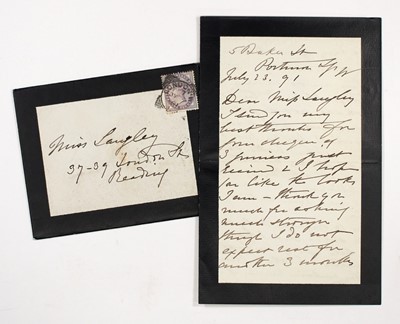 Miss Langley
37-39 London St
Reading
5 Baker St
Portman Sq W
July 23. 91
Dear Miss Langley
I send you my
best thanks for
your cheque of
3 guineas just
received & I hope
you like the books
I am - thank you
much for asking
much stronger
though I do not
expect rest for
another 3 months